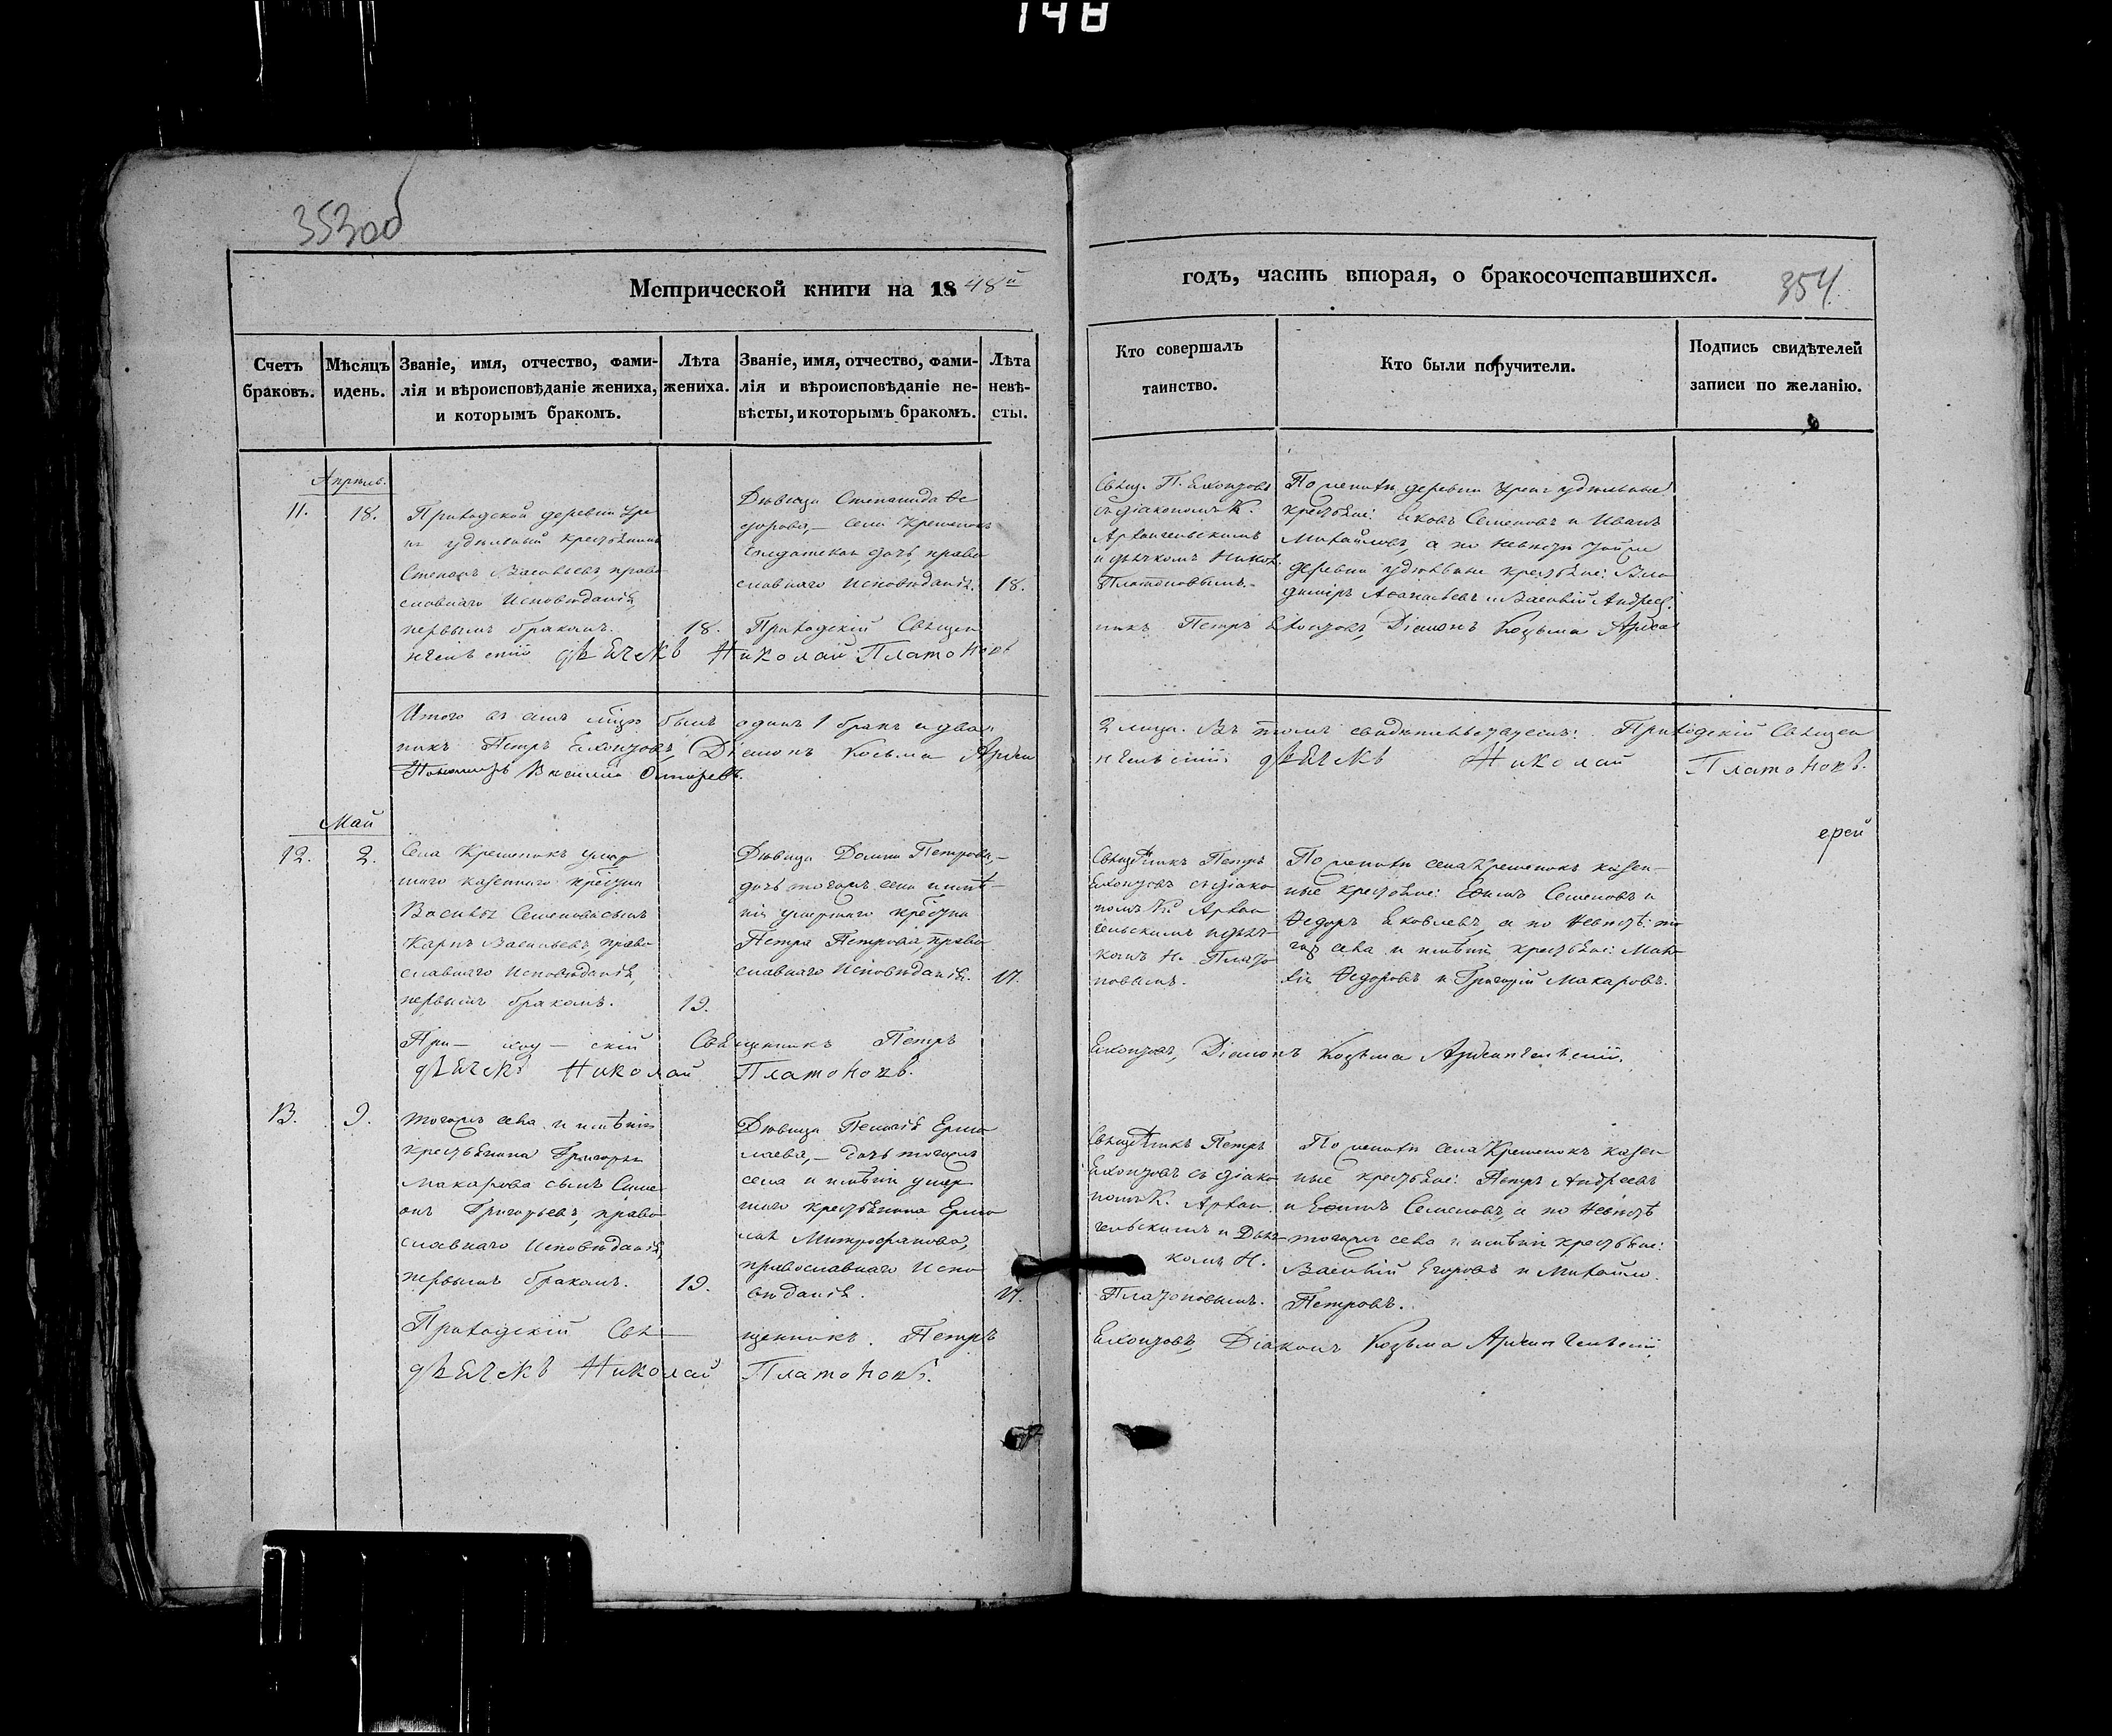 148
353об
Метрической книги на 1848й
годъ, часть вторая, о бракосочетавшихся.
354
Счетъ браковъ.
Мѣсяцъ и день.
Званіе, имя, отчество, фами-
лія и вѣроисповѣданіе жениха,
и которымъ бракомъ.
Лѣта
жениха.
Званіе, имя, отчество, фами-
лія и вѣроисповѣданіе не-
вѣсты, и которымъ бракомъ.
Лѣта
невѣ-
сты.
Кто совершалъ
таинство.
Кто были поручители.
Подпись свидѣтелей
записи по желанію.
Апрѣль.
11.
18.
Приходской деревни
удѣльный крестьянинъ
Степанъ Васильевъ, право
славнаго Исповѣданія,
первымъ бракомъ.
18.
Дѣвица Степанида Ѳе
дорова, — села Крешенокъ
Солдатская дочь, право
славнаго исповѣданія.
18.
Свящ. П.
съ діакономъ К.
Архангельскимъ
и дьячкомъ Никол.
Платоновымъ.
По женихѣ деревни удѣльные
крестьяне: Яковъ Семеновъ и Иванъ
Михайловъ, а по невѣстѣ тойже
деревни удѣльные крестьяне: Вла
димиръ Аѳанасьевъ и Василій Андреев.
Приходскій Священ
никъ Петръ Діаконъ Козьма Архан
гельскій дьячекъ Николай Платоновъ
Итого въ семъ мцѣ былъ одинъ 1 бракъ и двое
2 лица. Въ томъ свидѣтельствуемъ: Приходскій Священ
никъ Петръ Діаконъ Козьма Архан
гельскій дьячекъ Николай Платоновъ.
Пономарь Василій
Май
ерей
12.
2.
Села Крешенокъ умер
шаго казеннаго крестьян
Василья Семенова сынъ
Карпъ Васильевъ, право
славнаго Исповѣданія,
первымъ бракомъ.
19.
Дѣвица Домна Петрова, —
дочь тогожъ села и имѣ-
нія умершаго крестьян
Петра Петрова, право
славнаго Исповѣданія.
17.
Священникъ Петръ
съ діако
номъ К. Архан
гельскимъ и дьяч-
комъ Н. Плато
новымъ.
По женихѣ села Крешенокъ казен-
ные крестьяне: Еѳимъ Семеновъ и
Ѳедоръ Яковлевъ, а по невѣстѣ: то
гожъ села и имѣнія крестьяне: Мат-
вій Ѳедоровъ и Григорій Макаровъ.
При — ход — скій Священникъ Петръ
Діаконъ Козьма Архангельскій.
дьячекъ Николай Платоновъ.
13.
9.
Тогожъ села и имѣнія
крестьянина Григорья
Макарова сынъ Симе
онъ Григорьевъ, право
славнаго Исповѣданія,
первымъ бракомъ.
19.
Дѣвица Пелагія Ермо
лаева, — дочь тогожъ
села и имѣнія умер
шаго крестьянина Ермо
лая Митрофанова,
православнаго Испо
вѣданія.
17.
Священникъ Петръ
съ діако
номъ К. Архан
гельскимъ и Дьяч-
комъ Н.
Платоновымъ.
По женихѣ села Крешенокъ казен
ные крестьяне: Петръ Андреевъ
и Еѳимъ Семеновъ, а по невѣстѣ
тогожъ села и имѣнія крестьяне:
Василій Егоровъ и Михайло
Петровъ.
Приходскій Свя — щенникъ Петръ
Діаконъ Козьма Архангельскій
дьячекъ Николай Платоновъ.